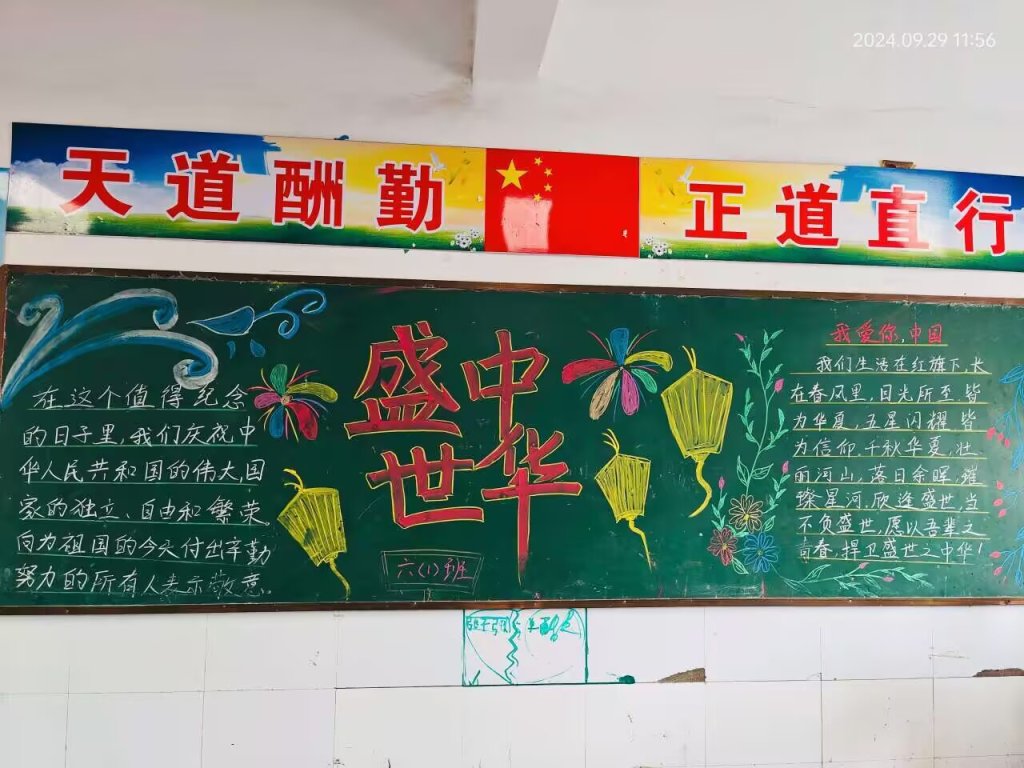 2024.09.29 11:56
天道酬勤
正道直行
在这个值得纪念
的日子里,我们庆祝中
华人民共和国的伟大,国
家的独立、自由和繁荣,
向为祖国的今天付出辛勤
努力的所有人表示敬意。
盛世
中华
六(1)班
我爱你,中国
我们生活在红旗下,长
在春风里,目光所至皆
为华夏,五星闪耀皆
为信仰,千秋华夏,壮
丽河山,落日余晖,璀
璨星河,欣逢盛世,当
不负盛世,愿以吾辈之
青春,捍卫盛世之中华!